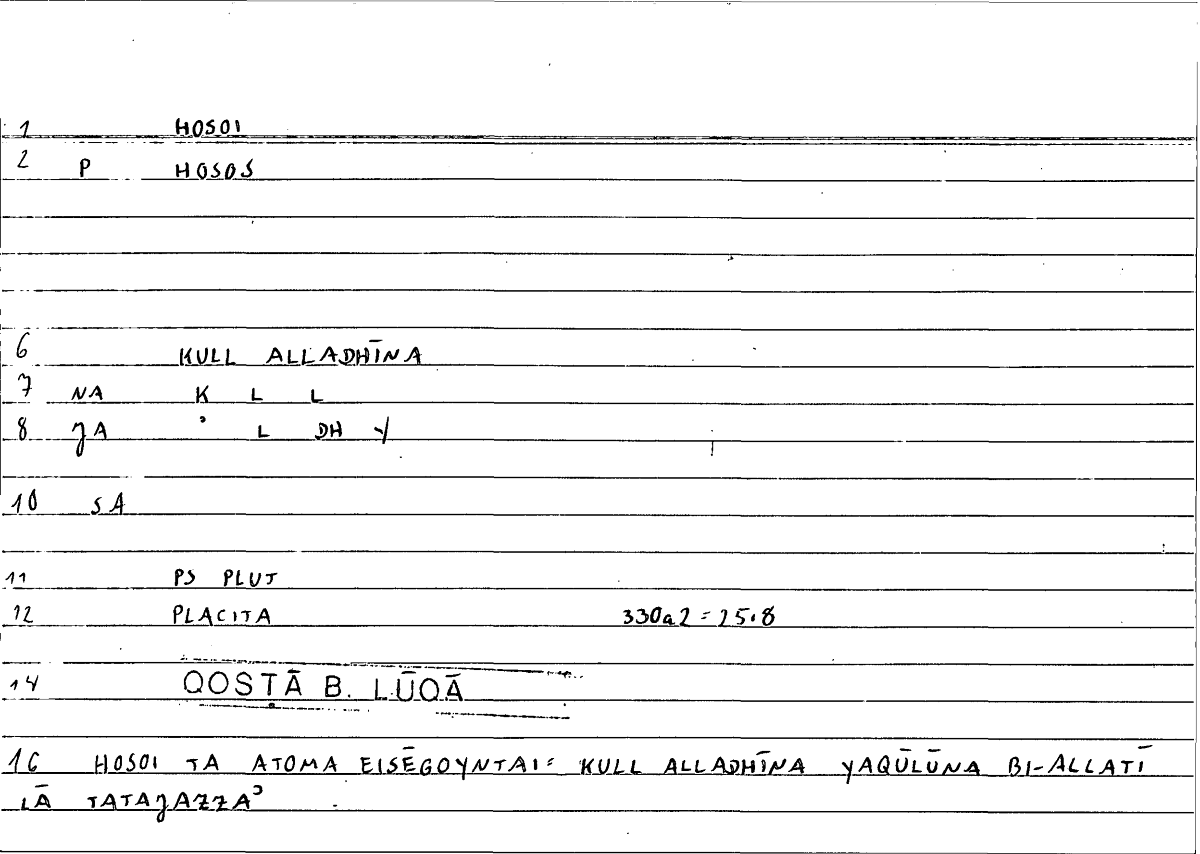 1 HOSOI
2 P HOSOS
6 KULL ALLADHĪNA
7 NA K L L
8 JA ʾ L DH Y
10 SA
11 PS PLUT
12 PLACITA 330a2 = 25.8
14 QOSṬĀ B. LŪQĀ
16 HOSOI TA ATOMA EISĒGOYNTAI = KULL ALLADHĪNA YAQŪLŪNA BI-ALLATĪ
LĀ TATAJAZZAʾ